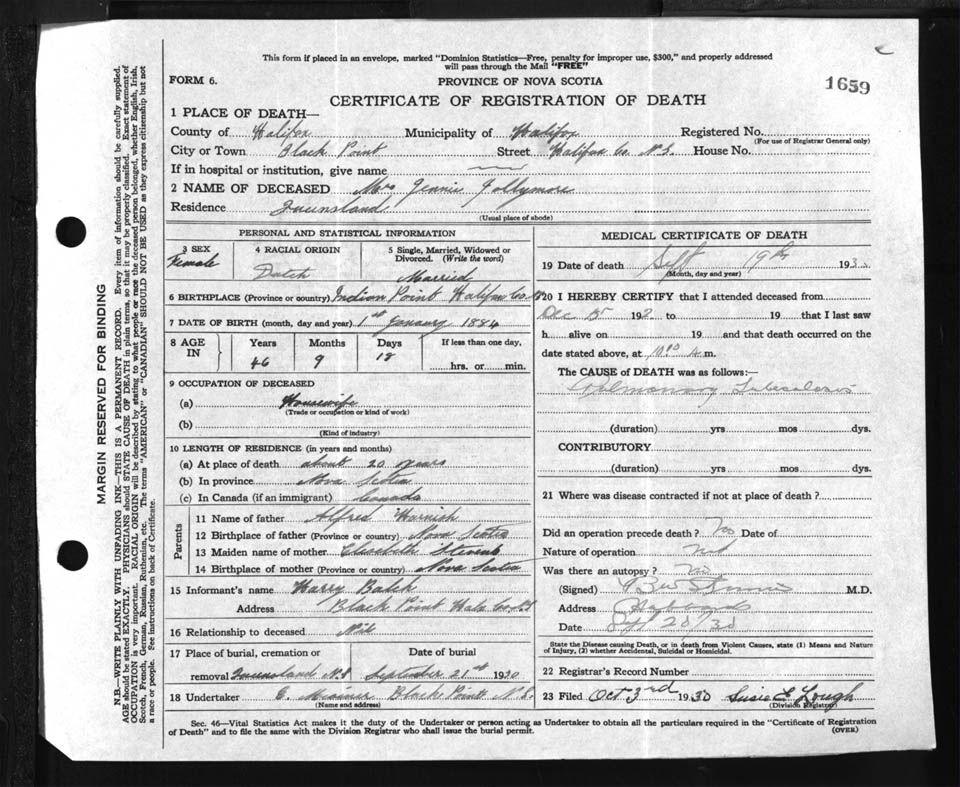 This form if placed in an envelope, marked "Dominion Statistics—Free, penalty for improper use, $300," and properly addressed
will pass through the Mail "FREE"
FORM 6.
PROVINCE OF NOVA SCOTIA
1659
CERTIFICATE OF REGISTRATION OF DEATH
1 PLACE OF DEATH—
County of Halifax Municipality of Halifax Registered No.
(For use of Registrar General only)
City or Town Black Point Street Halifax Co. N.S. House No.
If in hospital or institution, give name
2 NAME OF DECEASED Mrs Jennie Jollymore
Residence Queensland
(Usual place of abode)
PERSONAL AND STATISTICAL INFORMATION
3 SEX
Female
4 RACIAL ORIGIN
Dutch
5 Single, Married, Widowed or
Divorced. (Write the word)
Married
6 BIRTHPLACE (Province or country) Indian Point Halifax Co. N.S
7 DATE OF BIRTH (month, day and year) 1st January 1884
8 AGE
IN
Years
46
Months
9
Days
18
If less than one day,
hrs. or min.
9 OCCUPATION OF DECEASED
(a) Housewife
(Trade or occupation or kind of work)
(b)
(Kind of industry)
10 LENGTH OF RESIDENCE (in years and months)
(a) At place of death about 20 years
(b) In province Nova Scotia
(c) In Canada (if an immigrant) Canada
Parents
11 Name of father Alfred Harnish
12 Birthplace of father (Province or country) Nova Scotia
13 Maiden name of mother Elizabeth
14 Birthplace of mother (Province or country) Nova Scotia
15 Informant's name Harry Balch
Address Black Point
16 Relationship to deceased Nil
17 Place of burial, cremation or
removal Queensland N.S
Date of burial
September 21st 1930
18 Undertaker Black Point N.S.
(Name and address)
MEDICAL CERTIFICATE OF DEATH
19 Date of death Sept 19th 193
(Month, day and year)
20 I HEREBY CERTIFY that I attended deceased from
Dec 15 192 to 19 that I last saw
h alive on 19 and that death occurred on
date stated above, at m.
The CAUSE of DEATH was as follows:
Pulmonary Tuberculosis
(duration) yrs mos dys.
CONTRIBUTORY
(duration) yrs mos dys.
21 Where was disease contracted if not at place of death?
Did an operation precede death? No Date of
Nature of operation
Was there an autopsy? No
(Signed) M.D.
Address Hubbards
Date Sept 20/30
State the Disease causing Death, or in death from Violent Causes, state (1) Means and Nature
of Injury, (2) whether Accidental, Suicidal or Homicidal.
22 Registrar's Record Number
23 Filed Oct 3rd 1930 Susie E Lough
(Division Registrar)
Sec. 46—Vital Statistics Act makes it the duty of the Undertaker or person acting as Undertaker to obtain all the particulars required in the "Certificate of Registration
of Death" and to file the same with the Division Registrar who shall issue the burial permit.
(OVER)
MARGIN RESERVED FOR BINDING
N.B.—WRITE PLAINLY WITH UNFADING INK—THIS IS A PERMANENT RECORD. Every item of information should be carefully supplied.
AGE should be stated EXACTLY. PHYSICIANS should STATE CAUSE OF DEATH in plain terms, so that it may be properly classified. Exact statement of
OCCUPATION is very important. RACIAL ORIGIN will be described by stating to what people or race the deceased person belonged, whether English, Irish,
Scotch, French, German, Russian, Ruthenian, etc. The terms "AMERICAN" or "CANADIAN" SHOULD NOT BE USED as they express citizenship but not
a race or people. See instructions on back of Certificate.